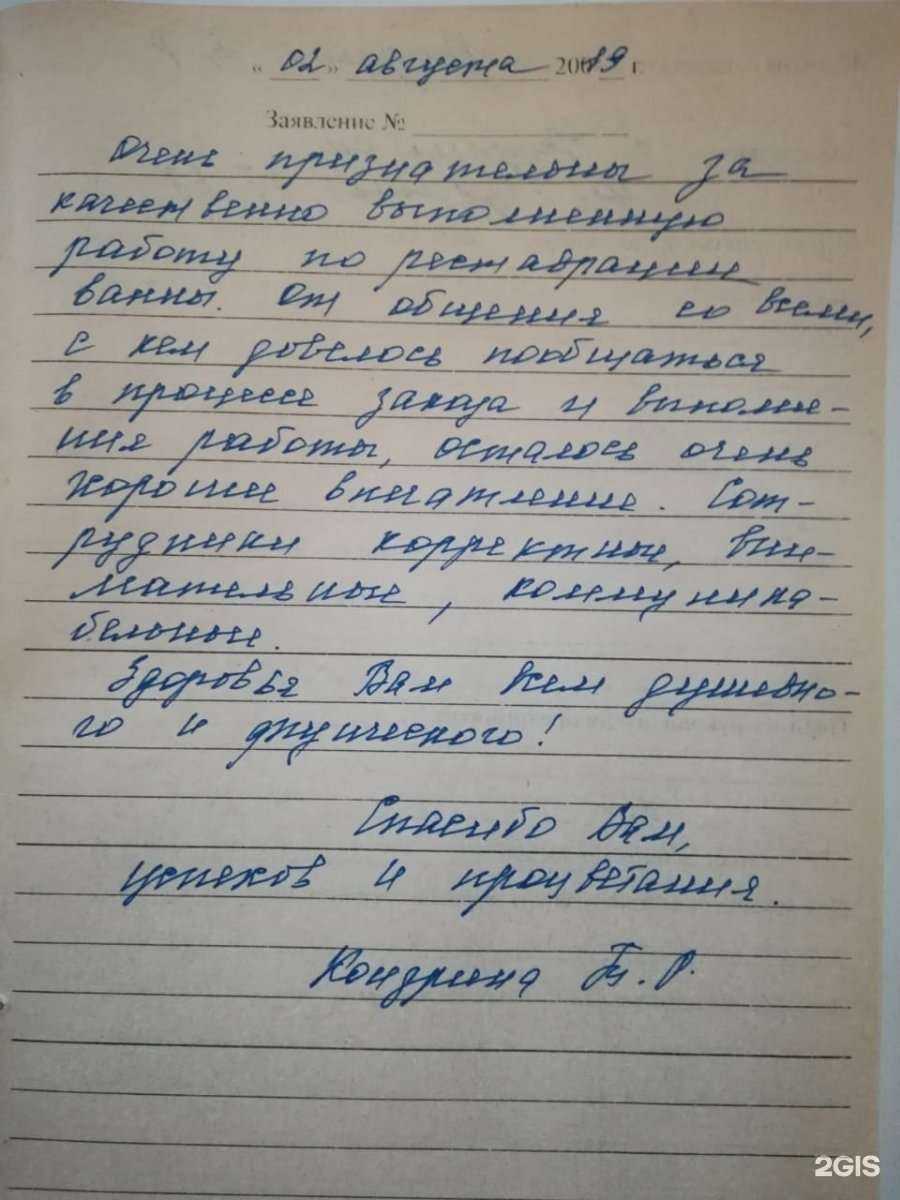 « 02 » августа 20019 г.
Заявление №
Очень признательны за
качественно выполненную
работу по реставрации
ванны. От общения со всеми,
с кем довелось пообщаться
в процессе заказа и выполне-
ния работы, осталось очень
хорошее впечатление. Сот-
рудники корректные, вни-
мательные, коммуника-
бельные.
Здоровья Вам всем душевно-
го и физического!
Спасибо Вам,
успехов и процветания.
2GIS